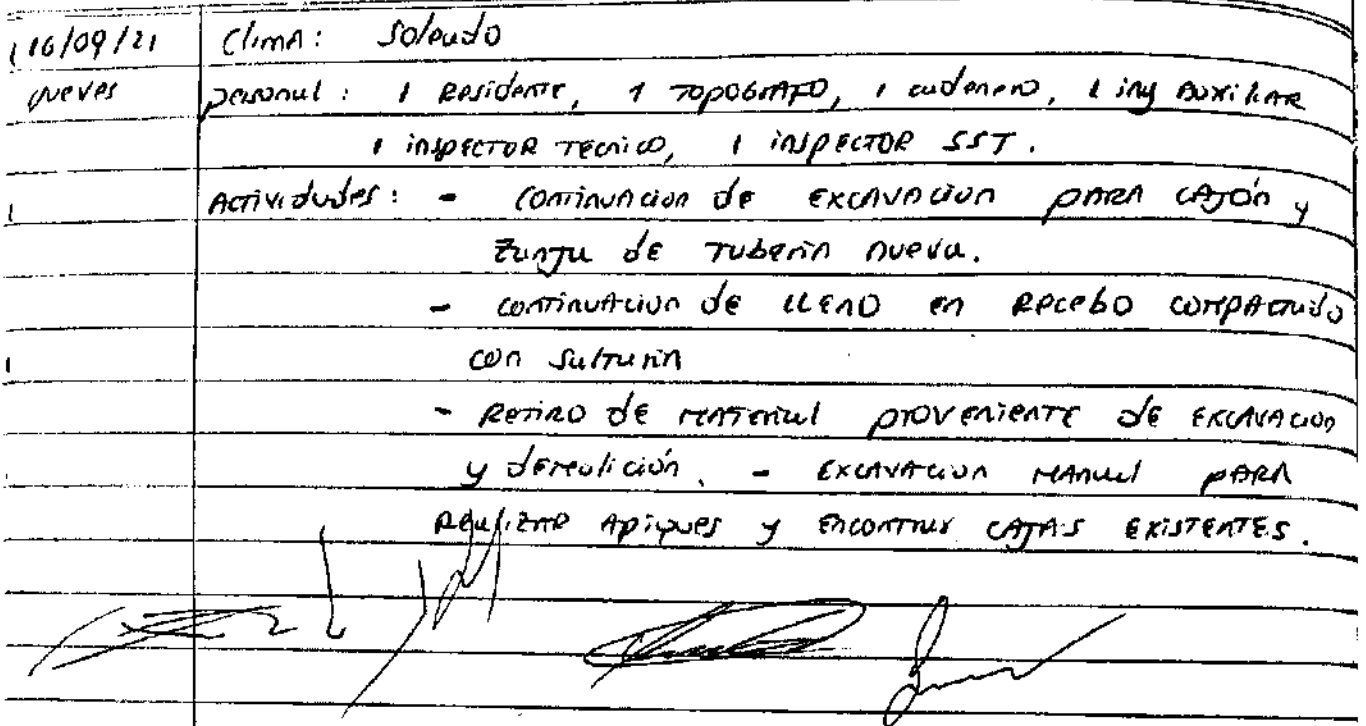 16/09/21 Clima: Soleado
jueves personal: 1 Residente, 1 TOPOGRAFO, 1 cadenero, 1 ing Auxiliar
1 inspector tecnico, 1 inspector SST.
Actividades: - continuacion de excavacion para cajón y
zanja de tuberia nueva.
- continuacion de lleno en recebo compactado
con saltarin
- Retiro de material proveniente de excavacion
y demolición. - Excavacion manual para
realizar apiques y encontrar cajas existentes.